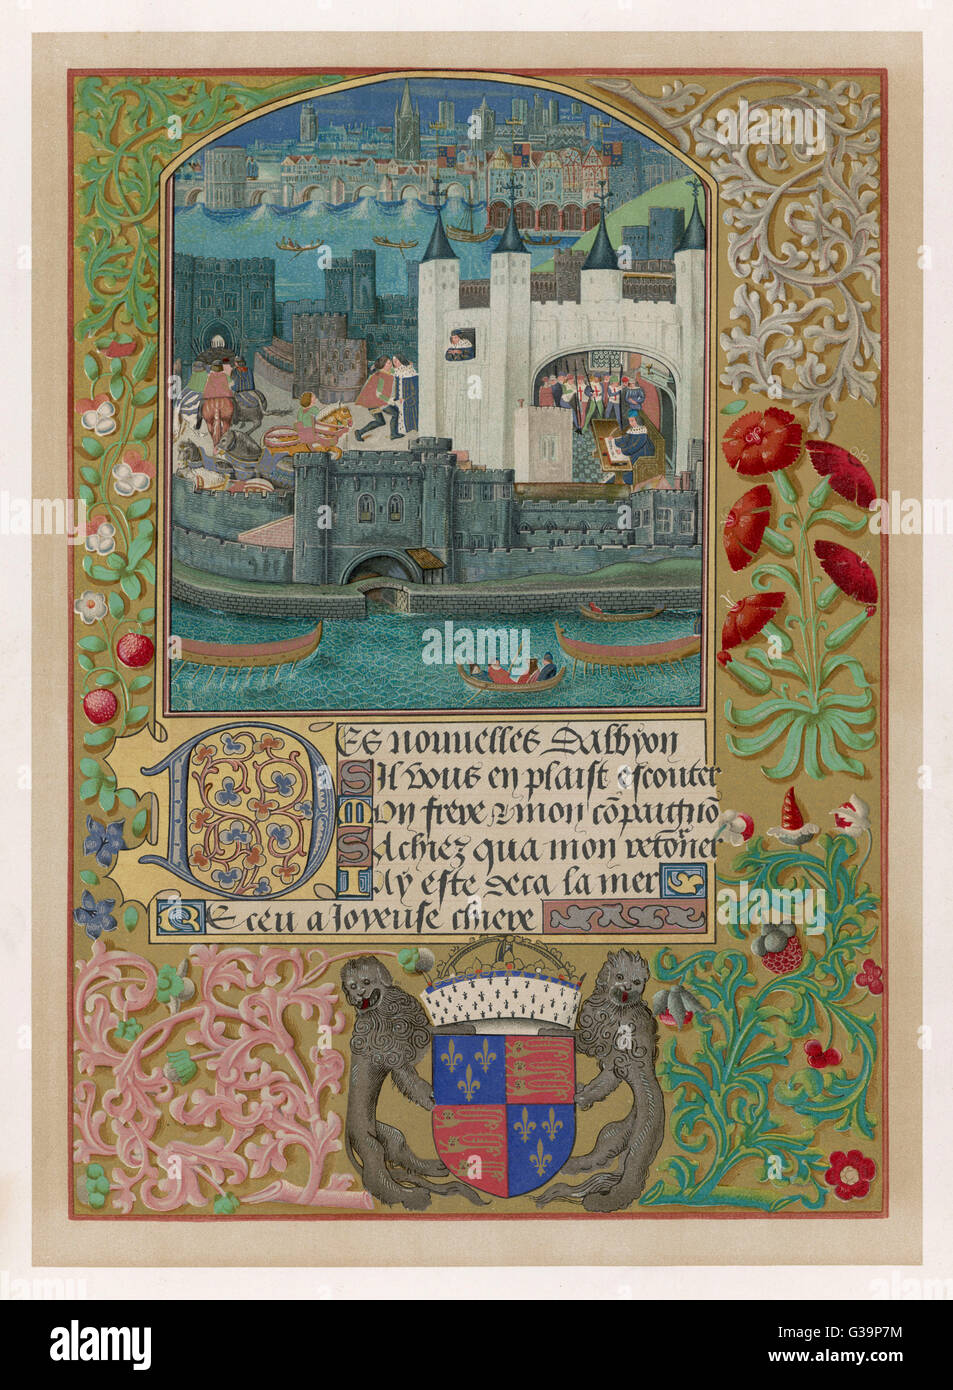 DES nouvelles Dalbyon
Sil vous en plaist escouter
Mon frere & mon cõpaignõ
Sachiez qua mon retõner
Iay este deca la mer
Receu a Joyeuse chiere
alamy
alamy
Image ID: G39P7M
www.alamy.com